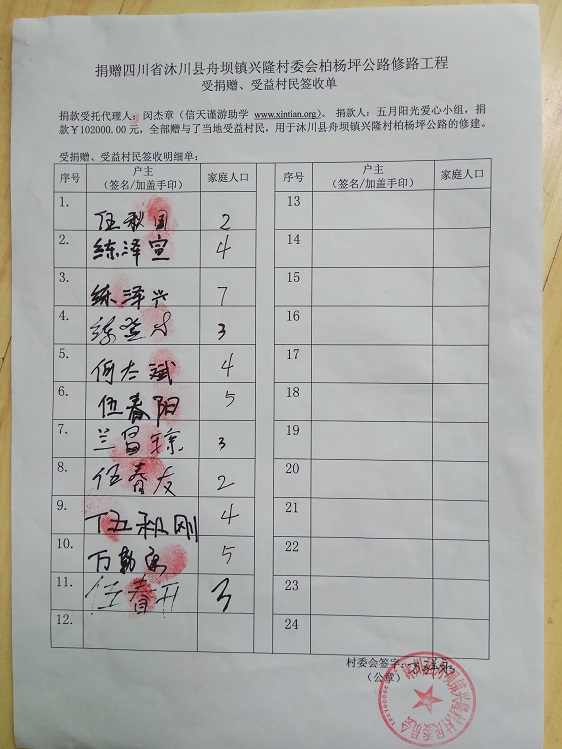 捐赠四川省沐川县舟坝镇兴隆村委会柏杨坪公路修路工程
受捐赠、受益村民签收单
捐款受托代理人：闵杰章（信天谨游助学 www.xintian.org）。 捐款人：五月阳光爱心小组，捐
款￥102000.00 元，全部赠与了当地受益村民，用于沐川县舟坝镇兴隆村柏杨坪公路的修建。
受捐赠、受益村民签收明细单：
序号 户主（签名/加盖手印） 家庭人口 序号 户主（签名/加盖手印） 家庭人口
1. 伍秋国 2 13
2. 练泽宣 4 14
3. 练泽兴 7 15
4. 3 16
5. 何太斌 4 17
6. 伍春阳 5 18
7. 兰昌琼 3 19
8. 伍春友 2 20
9. 伍秋刚 4 21
10. 万勤 5 22
11. 伍春开 3 23
12. 24
村委会签字：
（公章）
沐川县舟坝镇兴隆村村民委员会